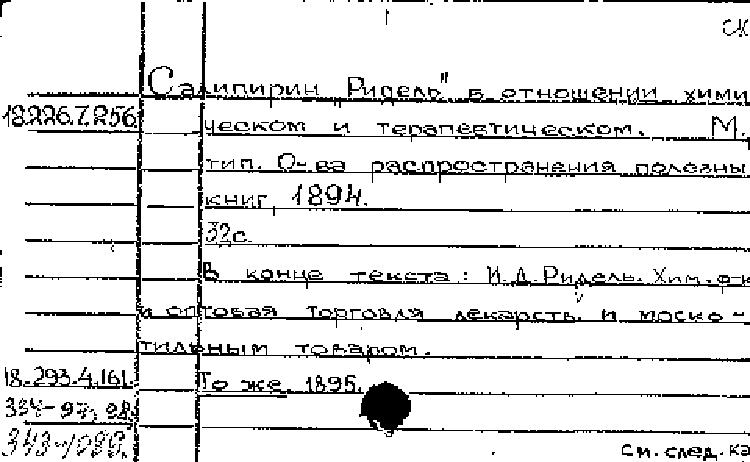 СК
Салипирин Ридель" в отношении хими
18.226.7.256
ческом и терапевтическом. М.,
тип. О-ва распространения полезны
книг, 1894.
32с.
В конце текста: И.Д. Ридель. Хим. ф-к
и оптовая торговля лекарств. и моско-
тильным товаром.
18.293.4.161.
То же. 1895.
334-97, 98
См. след. ка